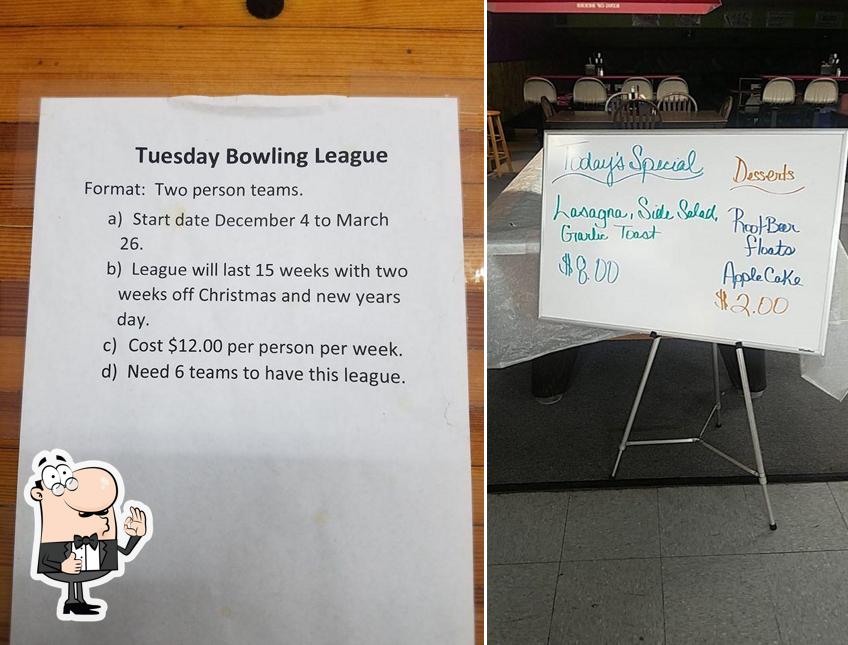 Tuesday Bowling League
Format: Two person teams.
a) Start date December 4 to March
26.
b) League will last 15 weeks with two
weeks off Christmas and new years
day.
c) Cost $12.00 per person per week.
d) Need 6 teams to have this league.
Today's Special
Lasagna, Side Salad,
Garlic Toast
$8.00
Desserts
Root Beer
floats
Apple Cake
$2.00